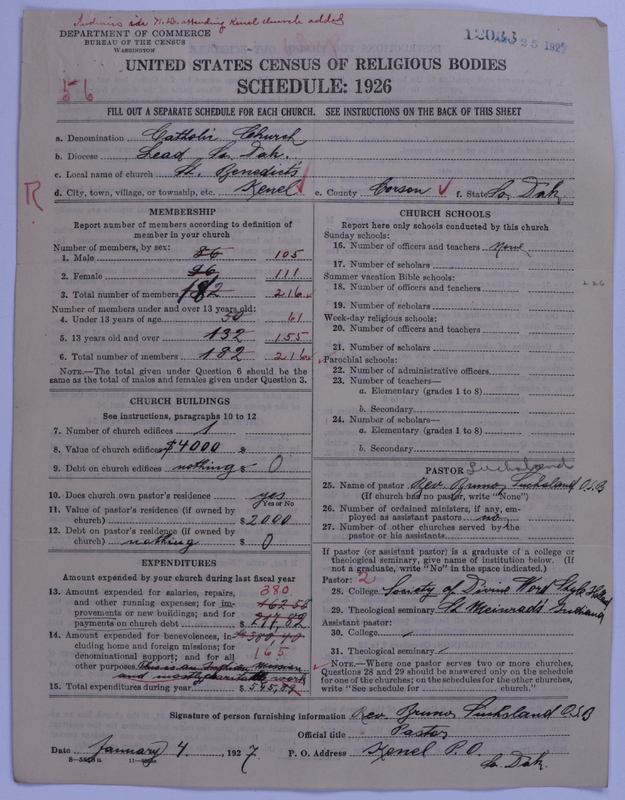 Indians in N.D. attending Kenel church added
DEPARTMENT OF COMMERCE
BUREAU OF THE CENSUS
WASHINGTON
25 1927
UNITED STATES CENSUS OF RELIGIOUS BODIES
56
SCHEDULE: 1926
FILL OUT A SEPARATE SCHEDULE FOR EACH CHURCH. SEE INSTRUCTIONS ON THE BACK OF THIS SHEET
a. Denomination Catholic Church
b. Diocese Lead So. Dak.
c. Local name of church St. Benedict's
R
d. City, town, village, or township, etc. Kenel e. County Corson f. State So. Dak.
MEMBERSHIP
Report number of members according to definition of
member in your church
Number of members, by sex:
1. Male 86 105
2. Female 96 111
3. Total number of members 182 216
Number of members under and over 13 years old:
4. Under 13 years of age 50 61
5. 13 years old and over 132 155
6. Total number of members 182 216
NOTE.—The total given under Question 6 should be
same as the total of males and females given under Question 3.
CHURCH BUILDINGS
See instructions, paragraphs 10 to 12
7. Number of church edifices 1
8. Value of church edifices $4000 $
9. Debt on church edifices nothing $ 0
10. Does church own pastor's residence yes
Yes or No
11. Value of pastor's residence (if owned by
church) $ 2000
12. Debt on pastor's residence (if owned by
church) nothing $ 0
EXPENDITURES
Amount expended by your church during last fiscal year
13. Amount expended for salaries, repairs, 380
and other running expenses; for im-
provements or new buildings; and for
payments on church debt $
14. Amount expended for benevolences, in-
cluding home and foreign missions; for
denominational support; and for all 165
other purposes. This is an Indian Mission
and mostly charitable work
15. Total expenditures during year $ 545,
CHURCH SCHOOLS
Report here only schools conducted by this church
Sunday schools:
16. Number of officers and teachers None
17. Number of scholars
Summer vacation Bible schools:
18. Number of officers and teachers
19. Number of scholars
Week-day religious schools:
20. Number of officers and teachers
21. Number of scholars
Parochial schools:
22. Number of administrative officers
23. Number of teachers—
a. Elementary (grades 1 to 8)
b. Secondary
24. Number of scholars—
a. Elementary (grades 1 to 8)
b. Secondary
PASTOR Luchsland
25. Name of pastor Rev. Bruno Luchsland O.S.B
(If church had no pastor, write "None")
26. Number of ordained ministers, if any, em-
ployed as assistant pastors no
27. Number of other churches served by the
pastor or his assistants
If pastor (or assistant pastor) is a graduate of a college or
theological seminary, give name of institution below. (If
not a graduate, write "No" in the space indicated.)
Pastor: 2
28. College Society of Divine Word Style Holland
29. Theological seminary St. Meinrad's Indiana
Assistant pastor:
30. College
31. Theological seminary
NOTE.—Where one pastor serves two or more churches,
Questions 28 and 29 should be answered only on the schedule
for one of the churches; on the schedules for the other churches,
write "See schedule for church."
Signature of person furnishing information Rev. Bruno Luchsland O.S.B
Official title Pastor
Date January 4, 1927 P. O. Address Kenel P.O.
So. Dak.